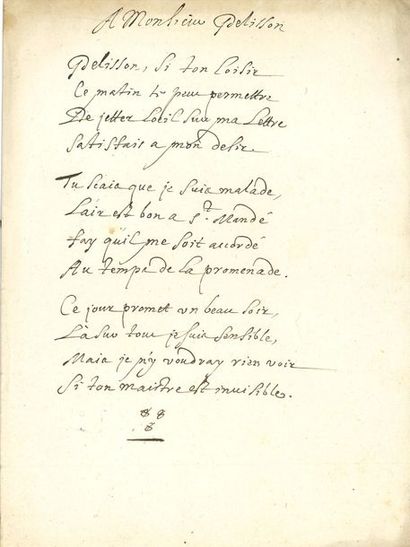 A Monsieur Pelisson
Pelisson, Si ton loisir
Ce matin te peut permettre
De jetter l'oeil sur ma Lettre
Satisfais a mon desir.
Tu scais que je suis malade,
L'air est bon a St. Mandé
fay qu'il me soit accordé
Au temps de la promenade.
Ce jour promet vn beau soir,
Là sur tout je suis sensible,
Mais je n'y voudray rien voir
Si ton maistre est inuisible.